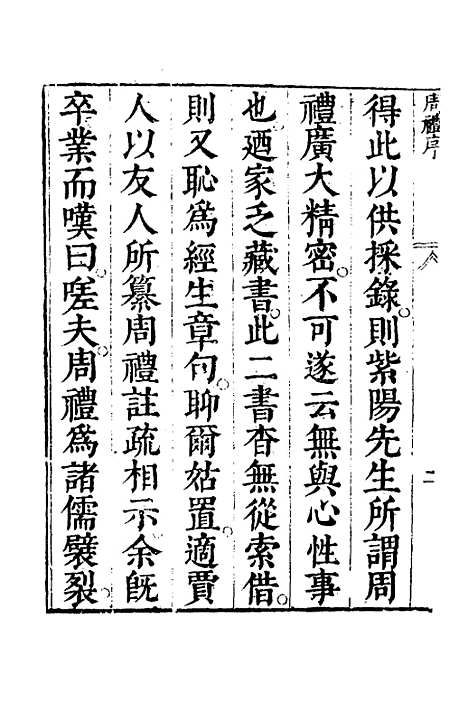 周禮序
二
得此以供採錄則紫陽先生所謂周
禮廣大精密。不可遂云無與心性事
也廼家乏藏書。此二書杳無從索借。
則又恥爲經生章句。聊爾姑置。適賈
人以友人所纂周禮註疏相示余旣
卒業而嘆曰。嗟夫。周禮爲諸儒襞裂。